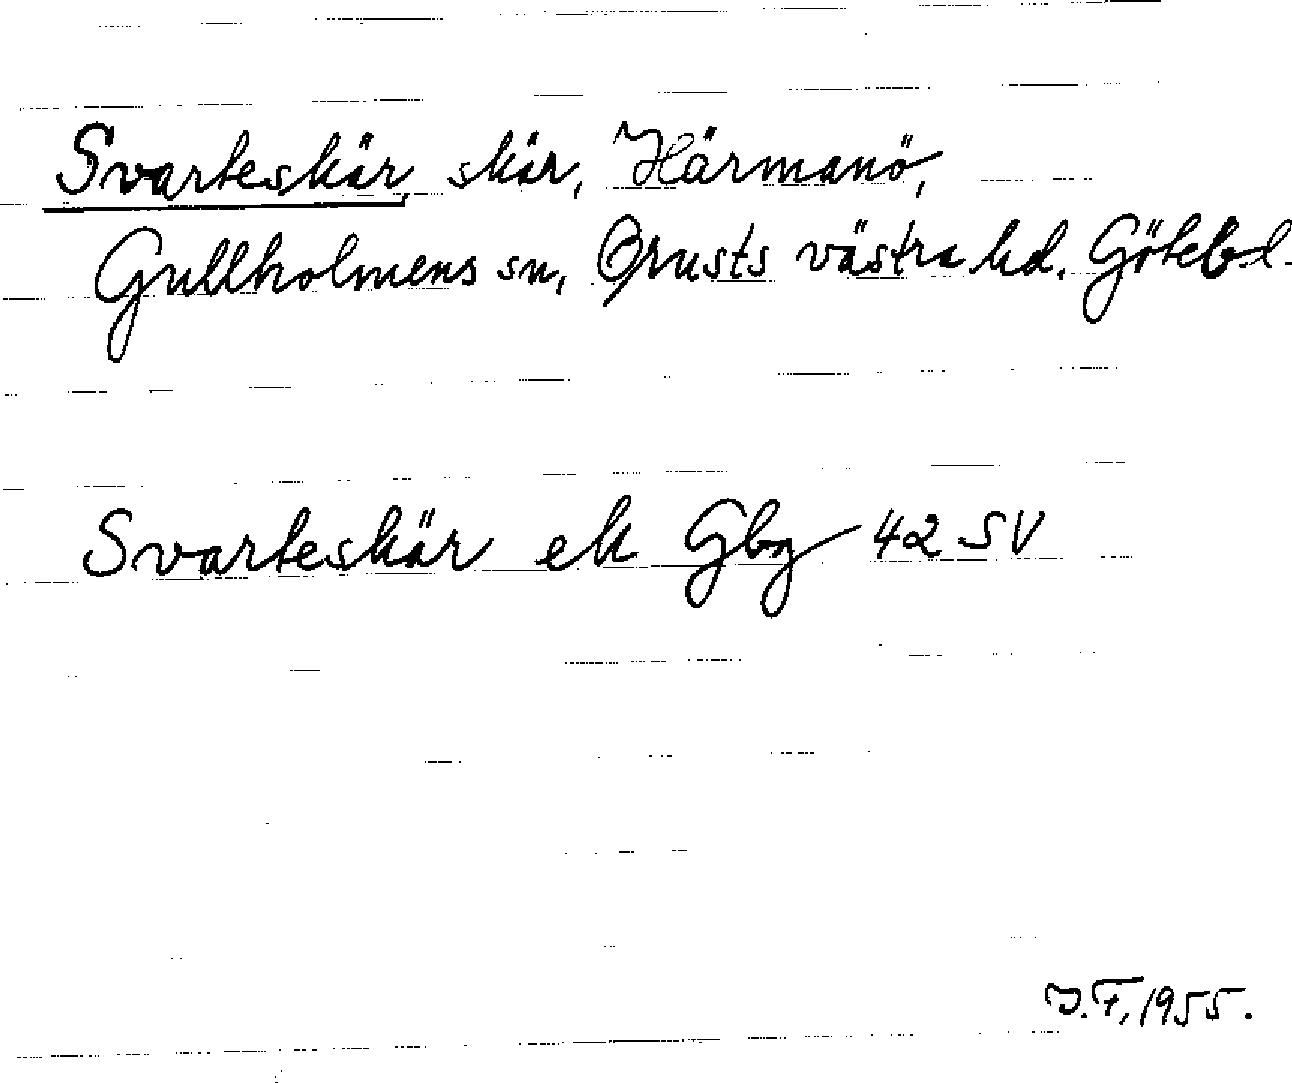 Svarteskär, skär, Härmanö,
Gullholmens sn, Orusts västra hd. Göteb.l.
Svarteskär ek Gbg 42 SV
J.F. 1955.